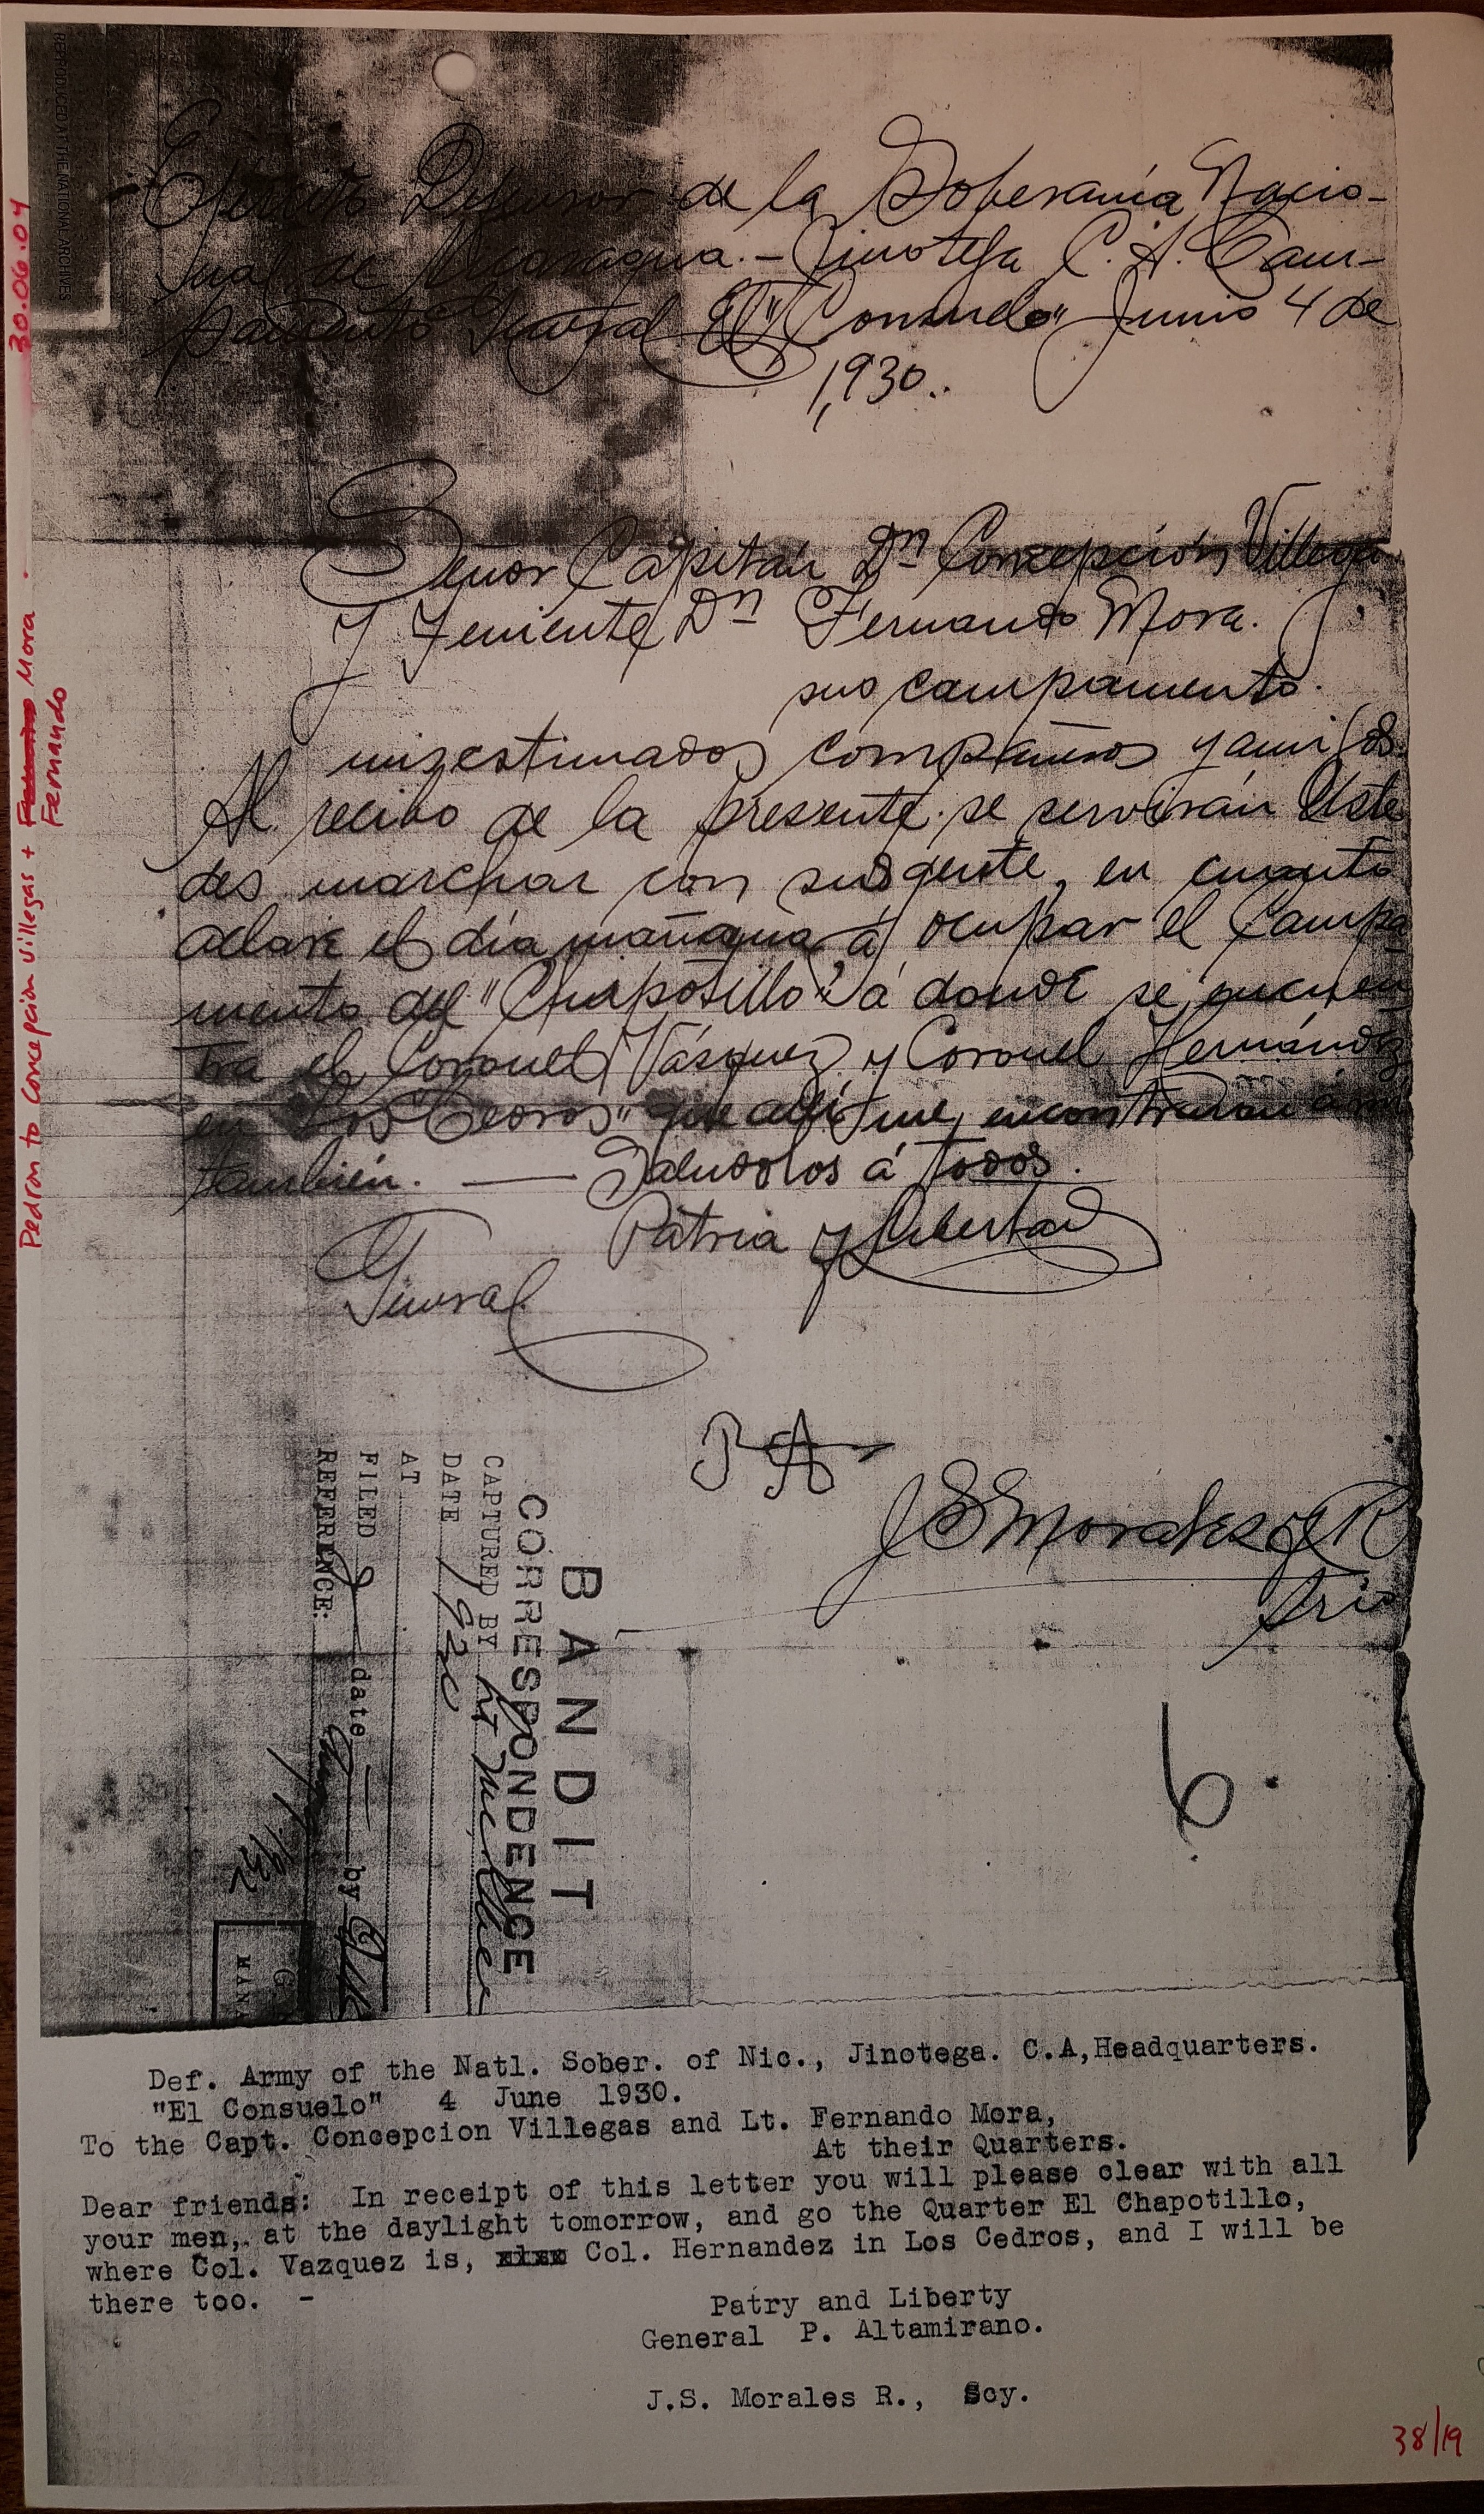 REPRODUCED AT THE NATIONAL ARCHIVES
30.06.04
Pedron to Concepción Villegas + Mora
Fernando
Ejército Defensor de la Soberanía Nacio-
nal de Nicaragua.- Jinotega C. A. Cam-
pamento General El "Consuelo" Junio 4 de
1,930..
Señor Capitán Dn Concepción Villega
y Teniente Dn Fernando Mora.
sus campamento.
mis estimados compañeros y amigos
Al recibo de la presente se servirán Uste
des marchar con sus gente, en cuanto
aclare el día mañana á ocupar el Campa-
mento del "Chapotillo" á donde se encuen
tra el Coronel Vásquez y Coronel Hernández
en "Los Cedros" que allí me encontrarán á mi
también. — Saludolos á todos.
Patria y Libertad
General
P A
J S Morales y R
Srio
6.
BANDIT
CORRESPONDENCE
CAPTURED BY Lt
DATE 1930
AT
FILED date by
REFERENCE:
1932
G.
MANA
Def. Army of the Natl. Sober. of Nic., Jinotega. C.A,Headquarters.
"El Consuelo" 4 June 1930.
To the Capt. Concepcion Villegas and Lt. Fernando Mora,
At their Quarters.
Dear friends: In receipt of this letter you will please clear with all
your men, at the daylight tomorrow, and go the Quarter El Chapotillo,
where Col. Vazquez is, Col. Hernandez in Los Cedros, and I will be
there too. -
Patry and Liberty
General P. Altamirano.
J.S. Morales R., Scy.
38/19